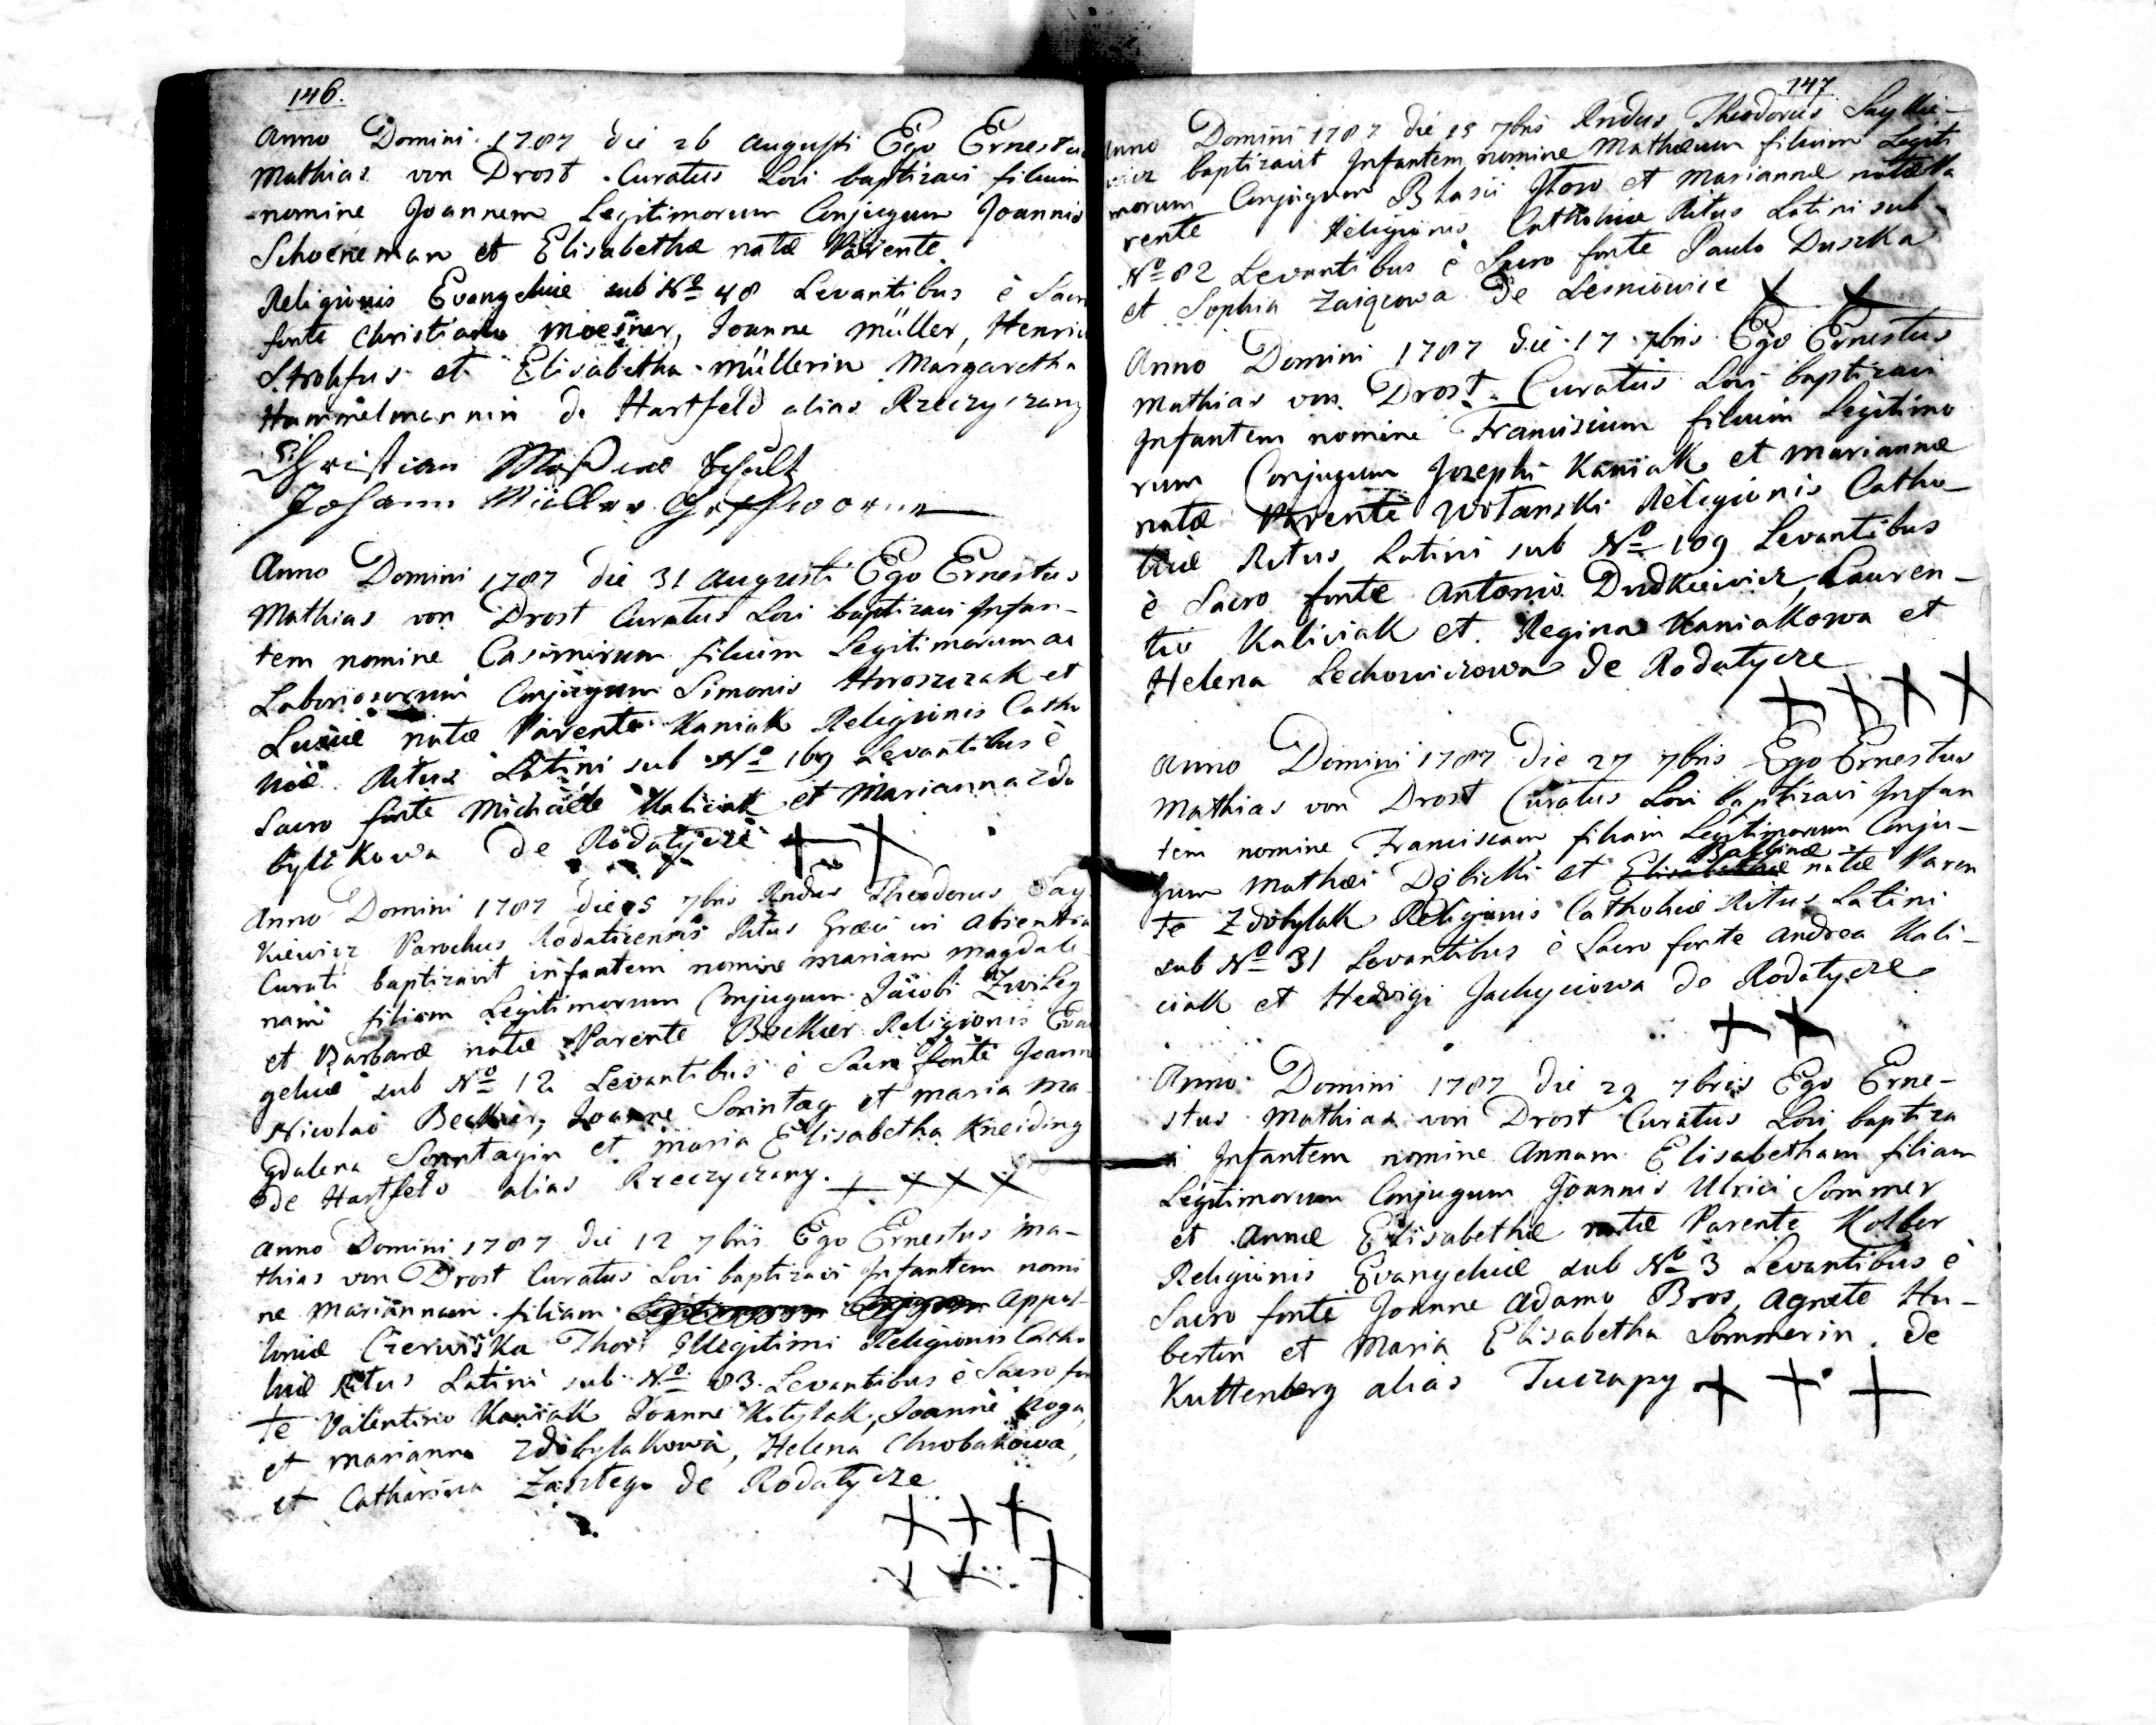 146.
Anno Domini 1787 die 26 Augusti Ego Ernestus
Mathias von Drost Curatus Loci baptizavi filium
nomine Joannem Legitimorum Conjugum Joannis
Schoeneman et Elisabethæ natæ Parente
Religionis Evangelicæ sub No 48 Levantibus è Sacro
fonte Christiano Moesner, Joanne Müller, Henrico
Strohfus et Elisabetha Müllerin Margaretha
Hammelmannin de Hartfeld alias Rzeczyczany
Christian
Johann Müller
Anno Domini 1787 die 31 Augusti Ego Ernestus
Mathias von Drost Curatus Loci baptizavi Infan-
tem nomine Casimirum filium Legitimorum ac
Laboriosorum Conjugum Simonis Hroszczak et
Luciæ natæ Parente Kaniak Religionis Catho
licæ Ritus Latini sub No 169 Levantibus è
Sacro fonte Michaele Kaliciak et Marianna Zdo
bylakowa de Rodatycze
Anno Domini 1787 die 5 7bris Rndus Theodorus Say
kiewicz Parochus Rodaticensis Ritus Græci in absentia
Curati baptizavit infantem nomine Mariam Magdale
nam filiam Legitimorum Conjugum Jacobi
et Barbaræ natæ Parente Becker Religionis Evan
gelicæ sub No 12 Levantibus è Sacro fonte Joanne
Nicolao Becker, Joanne Sonntag et Maria Ma-
gdalena Sonntagin et Maria Elisabetha Kneiding
de Hartfeld alias Rzeczyczany.
Anno Domini 1787 die 12 7bris Ego Ernestus Ma-
thias von Drost Curatus Loci baptizavi Infantem nomi
ne Mariannam filiam Legitimorum Conjugum Appol-
loniæ Czerwinska Thori Illegitimi Religionis Catho
licæ Ritus Latini sub No 83 Levantibus è Sacro fon
te Valentino Kaniak, Joanne Kotylak, Joanne Koza,
et Marianna Zdobylakowa, Helena Chrobakowa,
et Catharina de Rodatycze
147
Anno Domini 1787 die 15 7bris Rndus Theodorus Saykie-
wicz baptizavit Infantem nomine Mathæum filium Legiti
morum Conjugum Blasii et Mariannæ natæ Pa
rente Religionis Catholicæ Ritus Latini sub
No 82 Levantibus è Sacro fonte Paulo Duszka
et Sophia de Lesniowice
Anno Domini 1787 die 17 7bris Ego Ernestus
Mathias von Drost Curatus Loci baptizavi
Infantem nomine Franciscum filium Legitimo
rum Conjugum Josephi Kaniak et Mariannæ
natæ Parente Wolanski Religionis Catho-
licæ Ritus Latini sub No 109 Levantibus
è Sacro fonte Antonio Dudkiewicz, Lauren-
tio Kaliciak et Regina Kaniakowa et
Helena Lechowiczowa de Rodatycze
Anno Domini 1787 die 27 7bris Ego Ernestus
Mathias von Drost Curatus Loci baptizavi Infan
tem nomine Franciscam filiam Legitimorum Conju-
Balbinæ
gum Mathæi Dębicki et Elisabethæ natæ Paren
te Zdobylak Religionis Catholicæ Ritus Latini
sub No 31 Levantibus è Sacro fonte Andrea Kali-
ciak et Hedvigi Jachyciowa de Rodatycze
Anno Domini 1787 die 29 7bris Ego Erne-
stus Mathias von Drost Curatus Loci baptiza
vi Infantem nomine Annam Elisabetham filiam
Legitimorum Conjugum Joannis Ulrici Sommer
et Annæ Elisabethæ natæ Parente Kolber
Religionis Evangelicæ sub No 3 Levantibus è
Sacro fonte Joanne Adamo Bros, Agnete Hu-
bertin et Maria Elisabetha Sommerin de
Kuttenberg alias Tuczapy